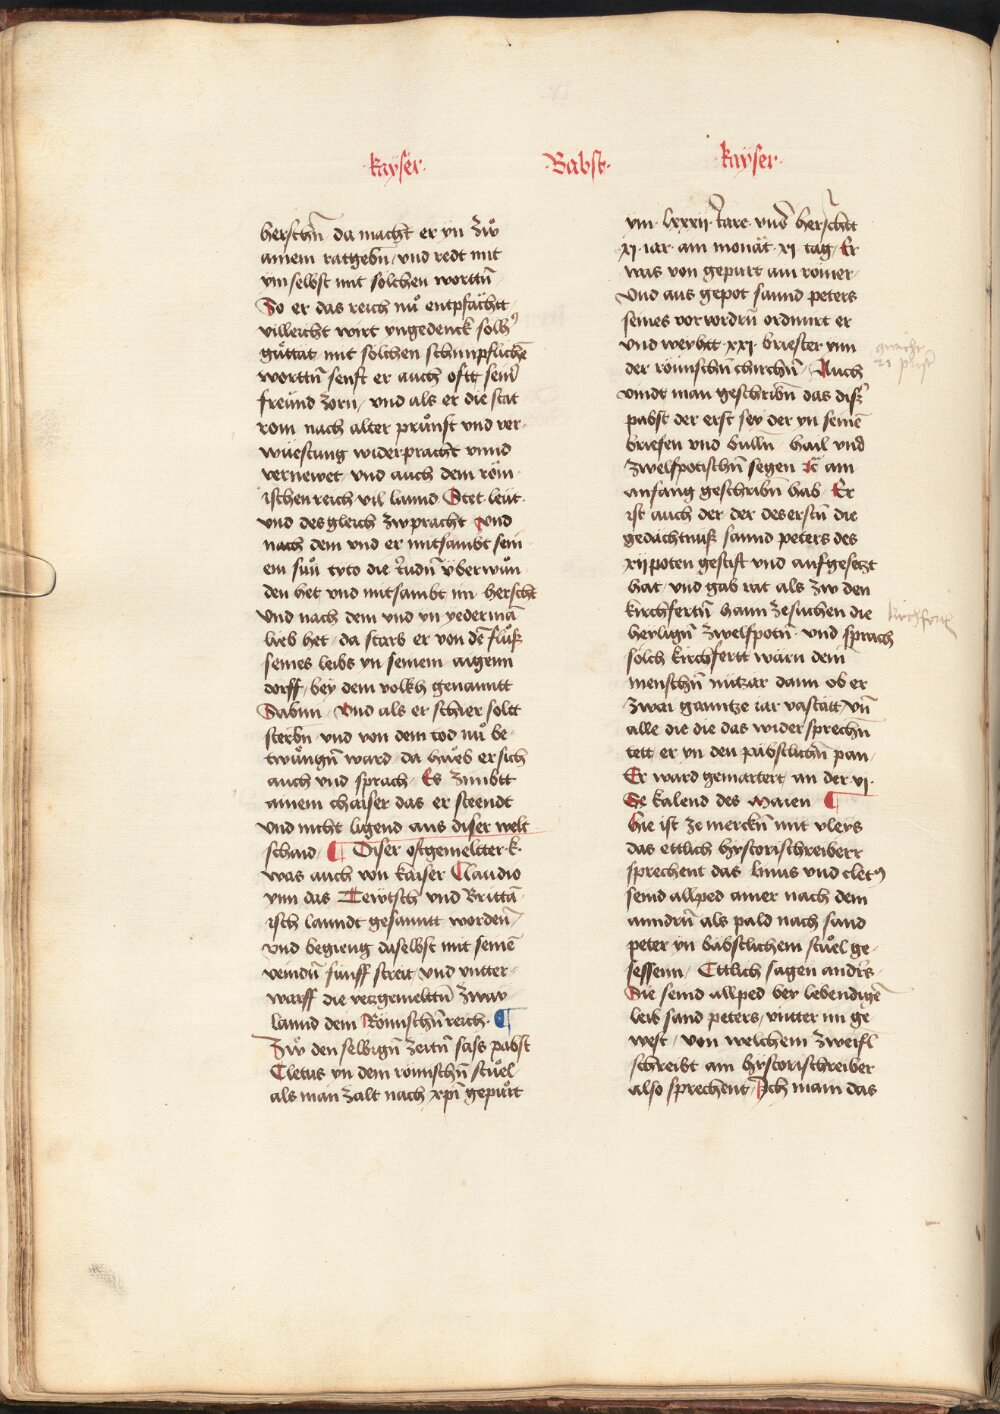 kayser· Babst· kayser·
herschñ da macht er yn zwͦ
ainem ratgebñ / vnd redt mit
im selbst mit solchen worttñ
So er das reich nuͦ entpfächtt /
villeicht wirt yngedenck solhˀ
guͤttat / mit solchen schimpflichē
worttñ senft er auch oftt seinˀ
freünd zorn / vnd als er die stat
rom nach alter pruͦnst vnd ver-
wüestung widerpracht vnnd
vernewet / vnd auch dem röm-
ischen reich vil lannd Stet leüt·
vnd desgleich zwpracht Vnd
nach dem vnd er mitsambt sein-
em suͦn tyto die Judñ vͤberwun̄
den het vnd mitsambt im herscht
Vnd nach dem vnd yn yedermā
lieb het / da starb er von dē fluͦß
seines leibs yn seinem aigenn
dorff / bey dem volkh genanntt
Sabini / Vnd als er schier soltt
sterbñ / vnd von dem tod nuͦ be-
twuͦngñ ward / da huͤeb er sich
auch vnd sprach / Es zimbtt
ainem chaiser das er steendt
vnd nicht ligend aus diser welt
schaid / ¶ Diser oftgemeltter k·
was auch von kaiser Claudio
ynn das Tewtsch vnd Brittā-
isch lanndt gesanntt wordenˀ /
vnd begieng daselbst mit seinē
veindñ fünff streit / vnd vntter-
warff die yetzgemelttñ zway
lannd dem Römischñ reich· ¶
Zwͦ den selbigñ zeitñ sass pabst
Cletus yn dem römischñ stuͦel
als man zalt nach xp̄i gepuͦrt
vm· lxxxii· Jare· vnd herschtt
xi· iar· ain monät· xi tag / Er
was von gepurt ain römer·
Vnd aus gepot sannd peters
seines vorvordrñ ordnirt er
vnd weybtt· xxi· briester ynn
der römischñ chirchñ / Auch
vindt man geschribñ das disˀ
pabst der erst sey der yn seinē
briefen vnd bullñ hail vnd
zwelfpotischñ segen ⁊c̄ am
anfang geschribñ hab Er
ist auch der der des erstñ die
gedächtnuß sannd peters des
xii poten gestift vnd aufgesetzt
hat / vnd gab rat als zw den
kirchfertñ hann zesuchen die
heyligñ zwelfpotñ· vnd sprach
sölch kirchfertt wärn dem
menschñ nützär dann ob er
zwai ganntze iar vastätt / Vñ
alle die die das wider sprechñ
tett er yn den päbstlichñ pan /
Er ward gemartert an der vi·
Te kalend des Maien ¶
hie ist zemerckñ mit vleys
das ettlich hystorischreiberr
sprechent das linus vnd cletˀ
seind allped ainer nach dem
anndrñ als pald nach sand
peter yn bäbstlichem stuͦel ge-
sessenn / Ettlich sagen andˀs·
Die seind allped bey lebendigē
leib sand peters / vntter im ge
west / von welchem zweifl
schreibt ain hystorischreiber
also sprechent / Ich main das
kirchfertt